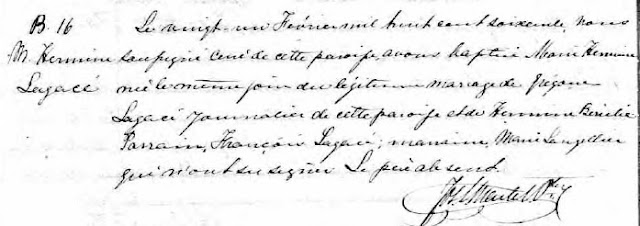 B. 16 Le vingt un Février mil huit cent soixante, nous
M. Hermine soussigné Curé de cette paroisse avons baptisé Marie Hermine
Lagacé née le même jour du légitime mariage de Grégoire
Lagacé journalier de cette paroisse et de Hermine
Parrain, François Lagacé; marraine, Marie Langelier
qui n'ont su signer. Le père absent.
Martel Ptre